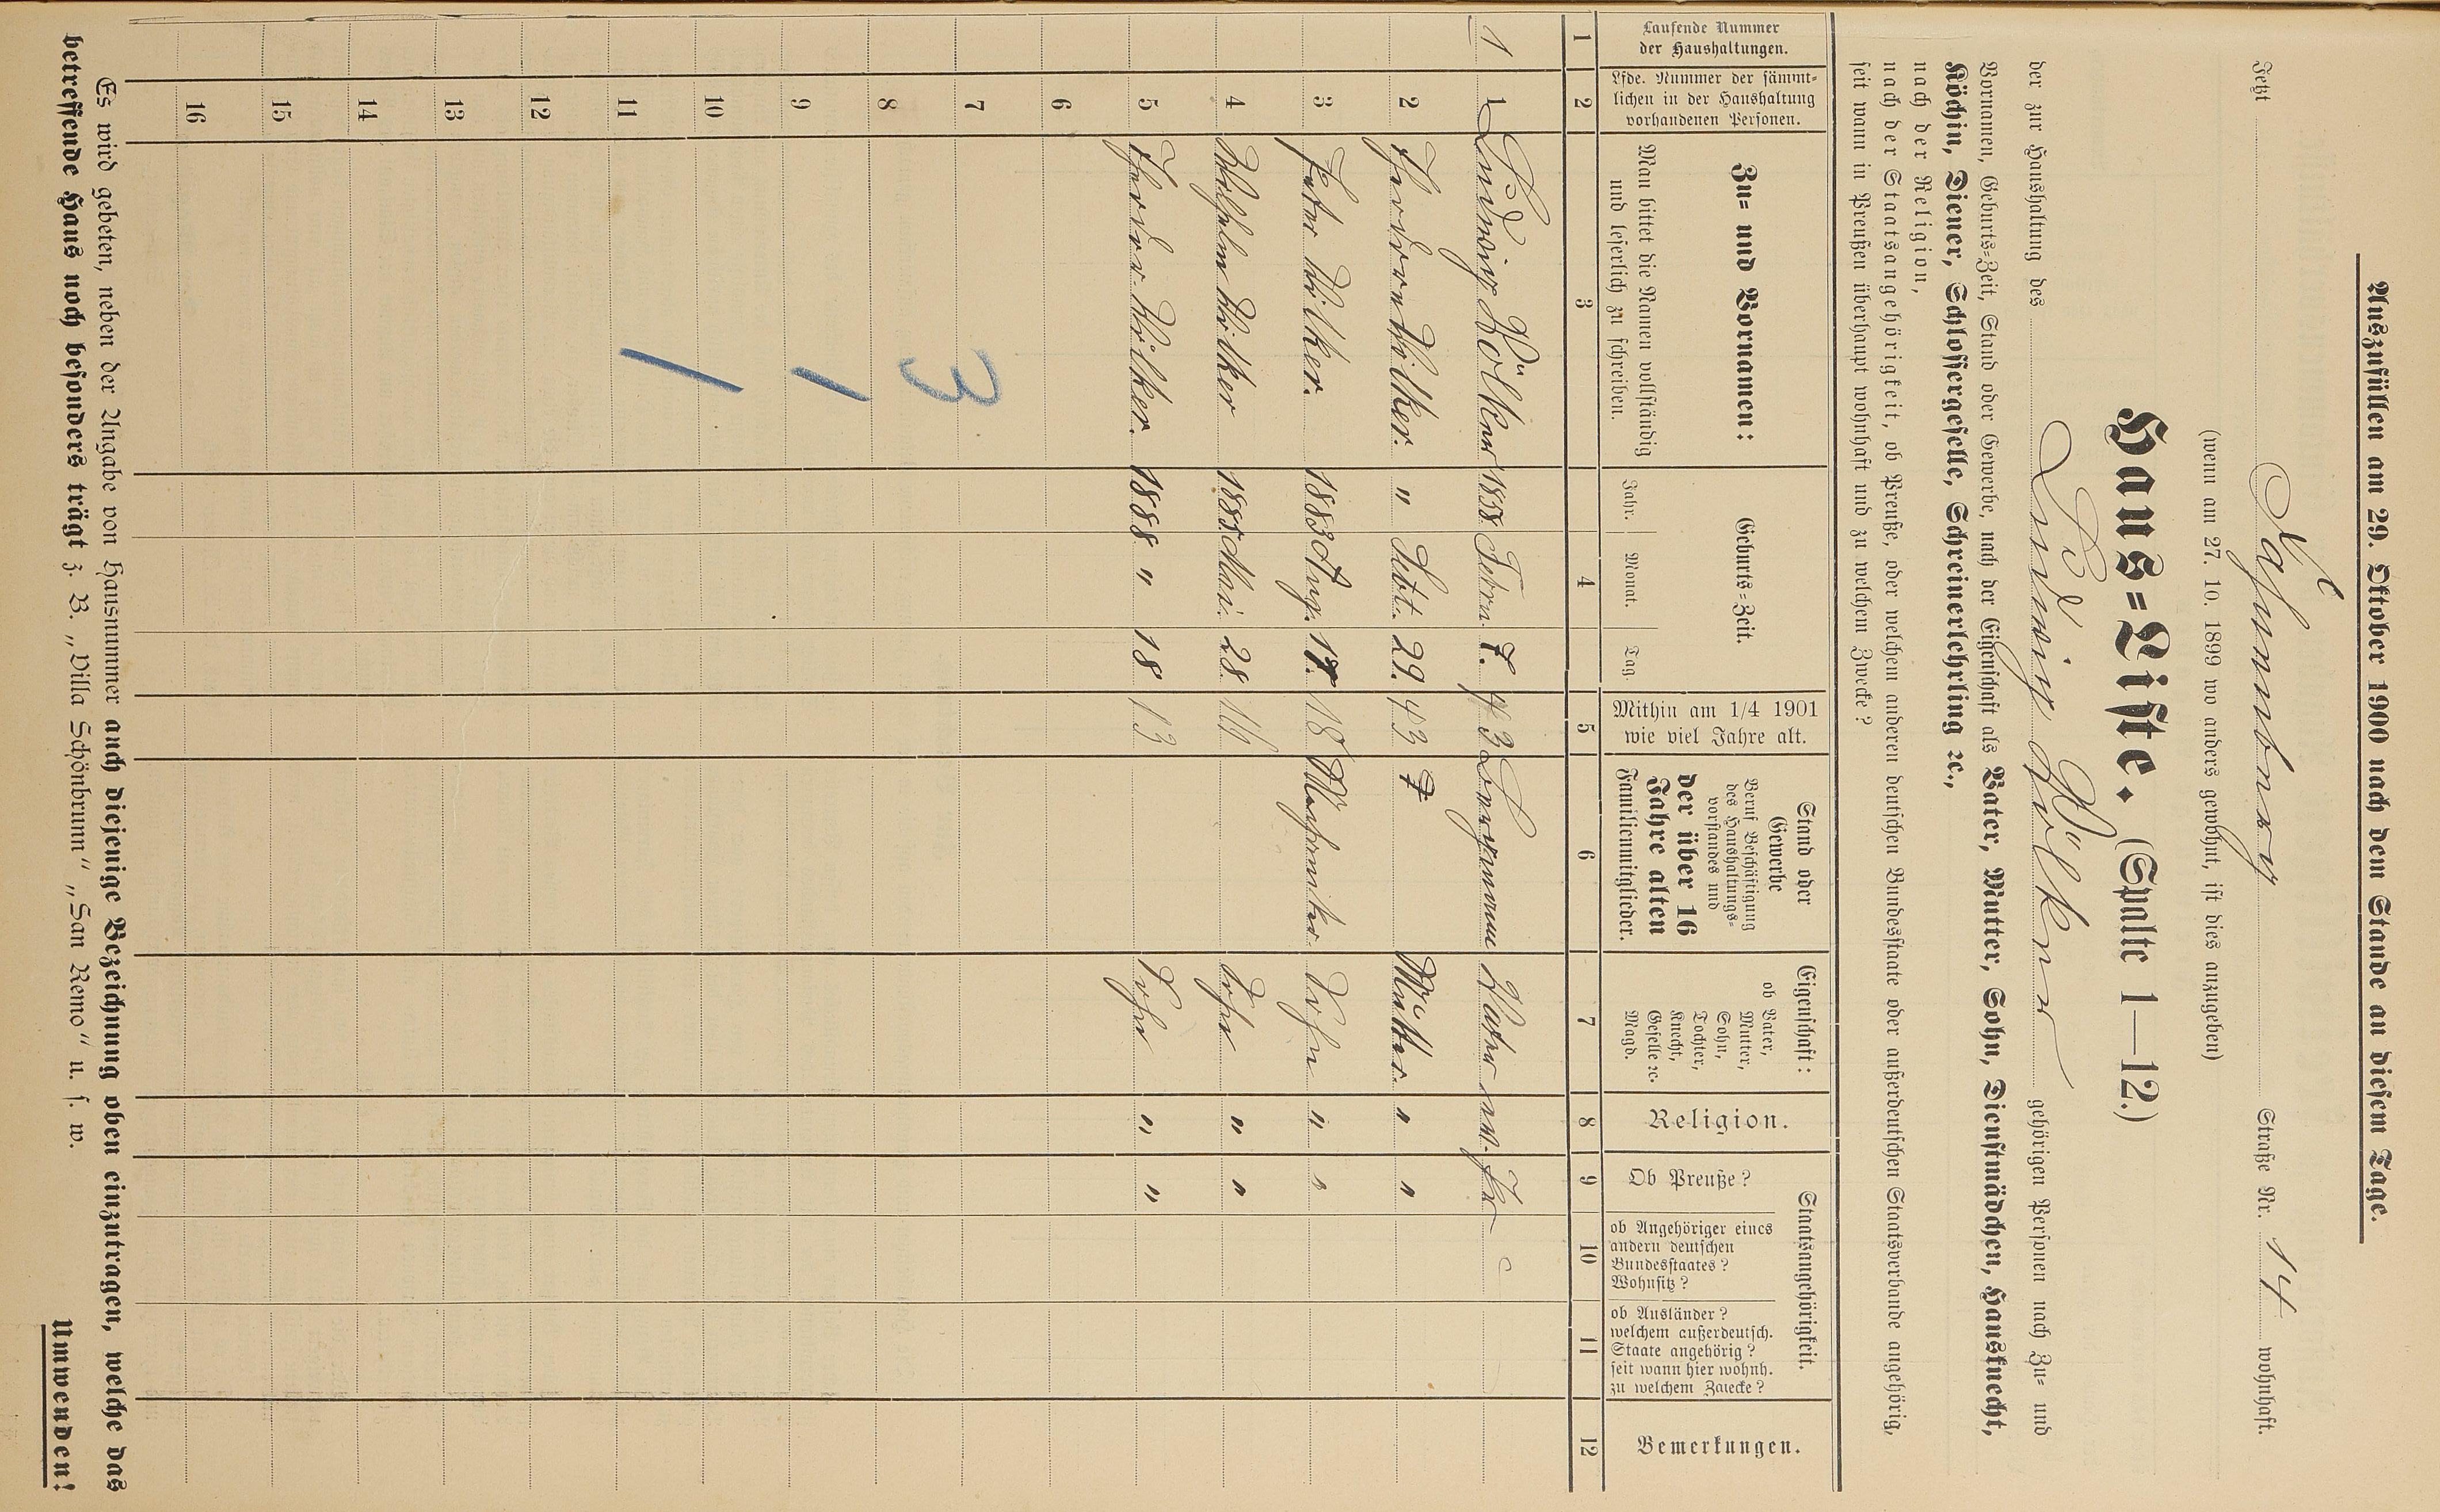 Auszufüllen am 29. Oktober 1900 nach dem Stande an diesem Tage.
Jetzt Straße Nr. 14 wohnhaft.
(wenn am 27. 10. 1899 wo anders gewohnt, ist dies anzugeben)
Haus=Liste. (Spalte 1—12.)
der zur Haushaltung des Ludwig Völker gehörigen Personen nach Zu= und
Vornamen, Geburts=Zeit, Stand oder Gewerbe, nach der Eigenschaft als Vater, Mutter, Sohn, Dienstmädchen, Hausknecht,
Köchin, Diener, Schlossergeselle, Schreinerlehrling ꝛc.,
nach der Religion,
nach der Staatsangehörigkeit, ob Preuße, oder welchem anderen deutschen Bundesstaate oder außerdeutschen Staatsverbande angehörig,
seit wann in Preußen überhaupt wohnhaft und zu welchem Zwecke?
Laufende Nummer der Haushaltungen.
Lfde. Nummer der sämmt=lichen in der Haushaltung vorhandenen Personen.
Zu= und Vornamen:
Man bittet die Namen vollständig und leserlich zu schreiben.
Geburts=Zeit.
Jahr. Monat. Tag.
Mithin am 1/4 1901 wie viel Jahre alt.
Stand oder Gewerbe
Beruf Beschäftigung des Haushaltungs=vorstandes und
der über 16 Jahre alten Familienmitglieder.
Eigenschaft:
ob Vater, Mutter, Sohn, Tochter, Knecht, Geselle ꝛc. Magd.
Religion.
Staatsangehörigkeit.
Ob Preuße?
ob Angehöriger eines andern deutschen Bundesstaates? Wohnsitz?
ob Ausländer? welchem außerdeutsch. Staate angehörig? seit wann hier wohnh. zu welchem Zwecke?
Bemerkungen.
1 2 3 4 5 6 7 8 9 10 11 12
1 1 Ludwig Völker 1858 Febru. 7. 43 Bergmann Vater ev. Pr
2 Völker. " 29. 43 Mutter. " "
3 Peter Völker. 1883 Aug. 18 Sohn " "
4 Wilhelm Völker 1885 Mai. 28. 16 Sohn " "
5 Völker. 1888 " 18 13 Sohn " "
6
7
3
8
9
10
11
12
13
14
15
16
Es wird gebeten, neben der Angabe von Hausnummer auch diejenige Bezeichnung oben einzutragen, welche das
betreffende Haus noch besonders trägt z. B. „Villa Schönbrunn" „San Remo" u. s. w.
Umwenden!